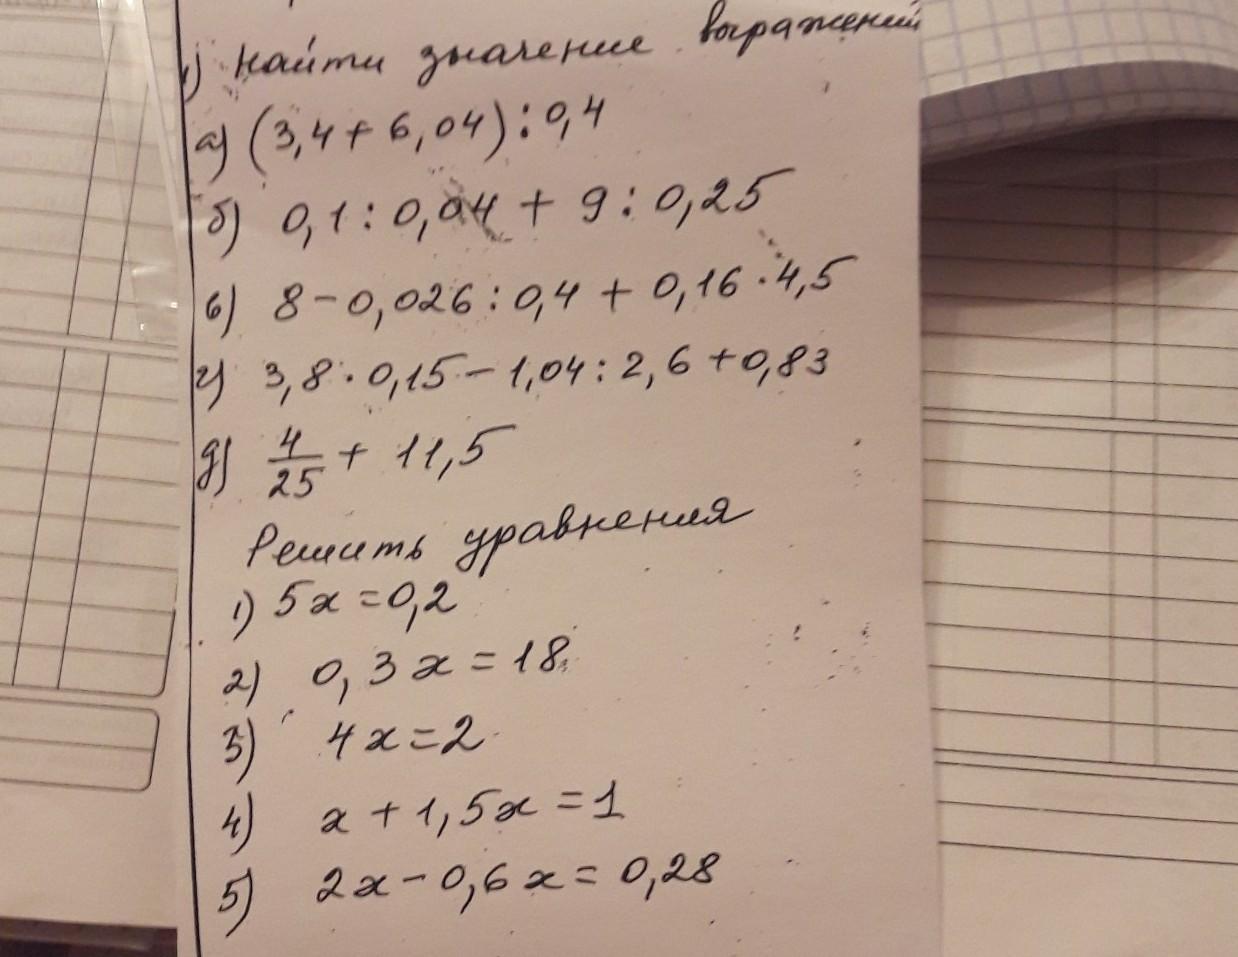 1) Найти значение выражений
а) (3,4 + 6,04) : 0,4
б) 0,1 : 0,04 + 9 : 0,25
в) 8 - 0,026 : 0,4 + 0,16 · 4,5
г) 3,8 · 0,15 - 1,04 : 2,6 + 0,83
д) 4/25 + 11,5
Решить уравнения
1) 5x = 0,2
2) 0,3x = 18
3) 4x = 2
4) x + 1,5x = 1
5) 2x - 0,6x = 0,28